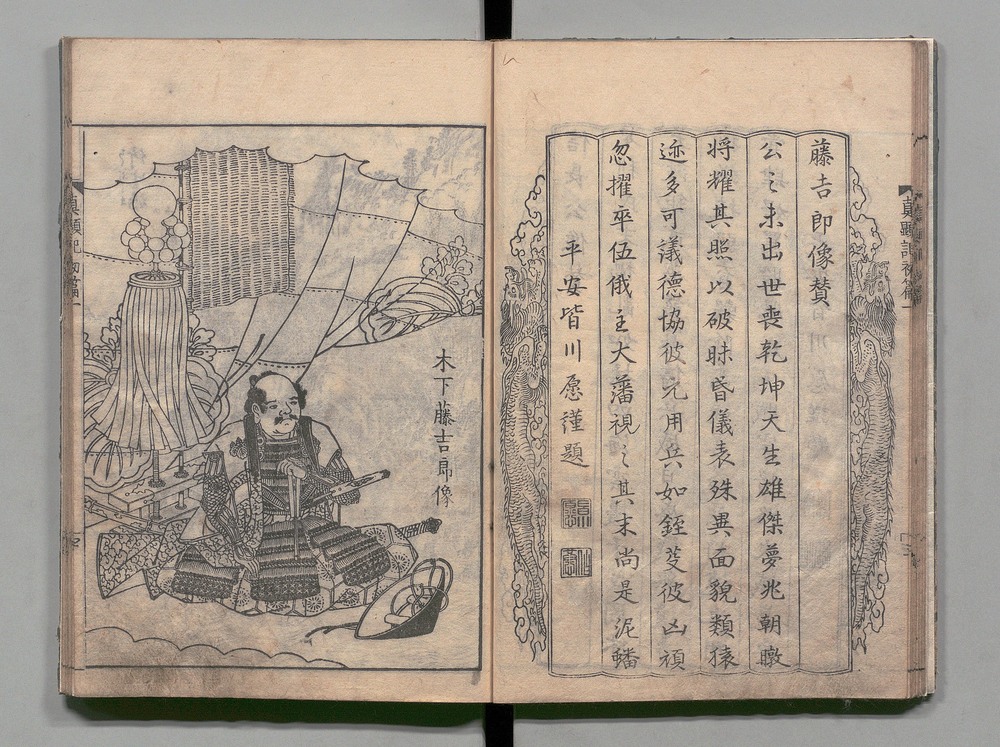 藤吉郎像賛
公之未出世喪乾坤天生雄傑夢兆朝暾
将耀其照以破昧昏儀表殊異面貌類猿
迹多可議徳協彼元用兵如銍芟彼凶頑
忽擢卒伍俄主大藩視之其末尚是泥蟠
平安皆川愿謹題
木下藤吉郎像
真顕記